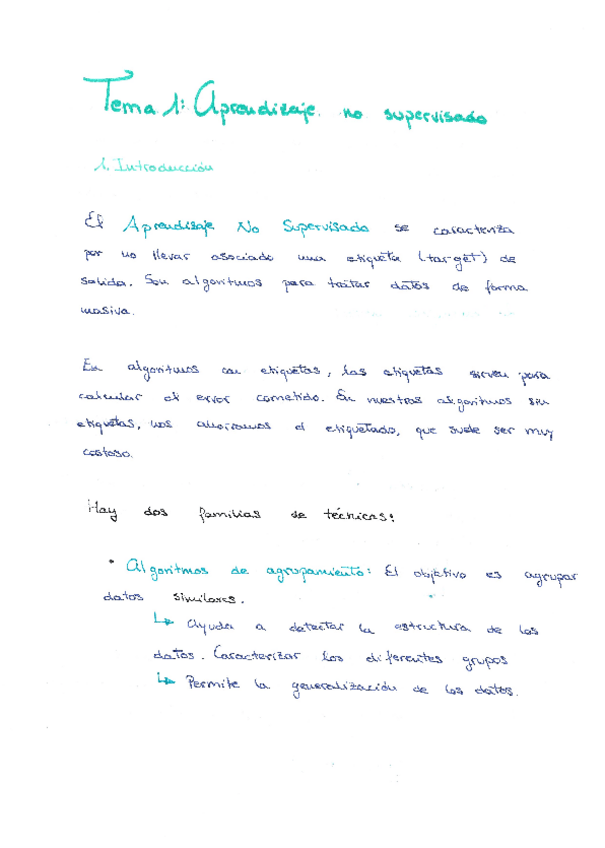 Tema 1: Aprendizaje no supervisado
1. Introducción
El Aprendizaje No Supervisado se caracteriza
por no llevar asociado una etiqueta (target) de
salida. Son algoritmos para tratar datos de forma
masiva.
En algoritmos con etiquetas, las etiquetas sirven para
calcular el error cometido. En nuestros algoritmos sin
etiquetas, nos ahorramos el etiquetado, que suele ser muy
costoso.
Hay dos familias de técnicas:
* Algoritmos de agrupamiento: El objetivo es agrupar
datos similares.
↳ Ayuda a detectar la estructura de los
datos. Caracterizar los diferentes grupos
↳ Permite la generalización de los datos.